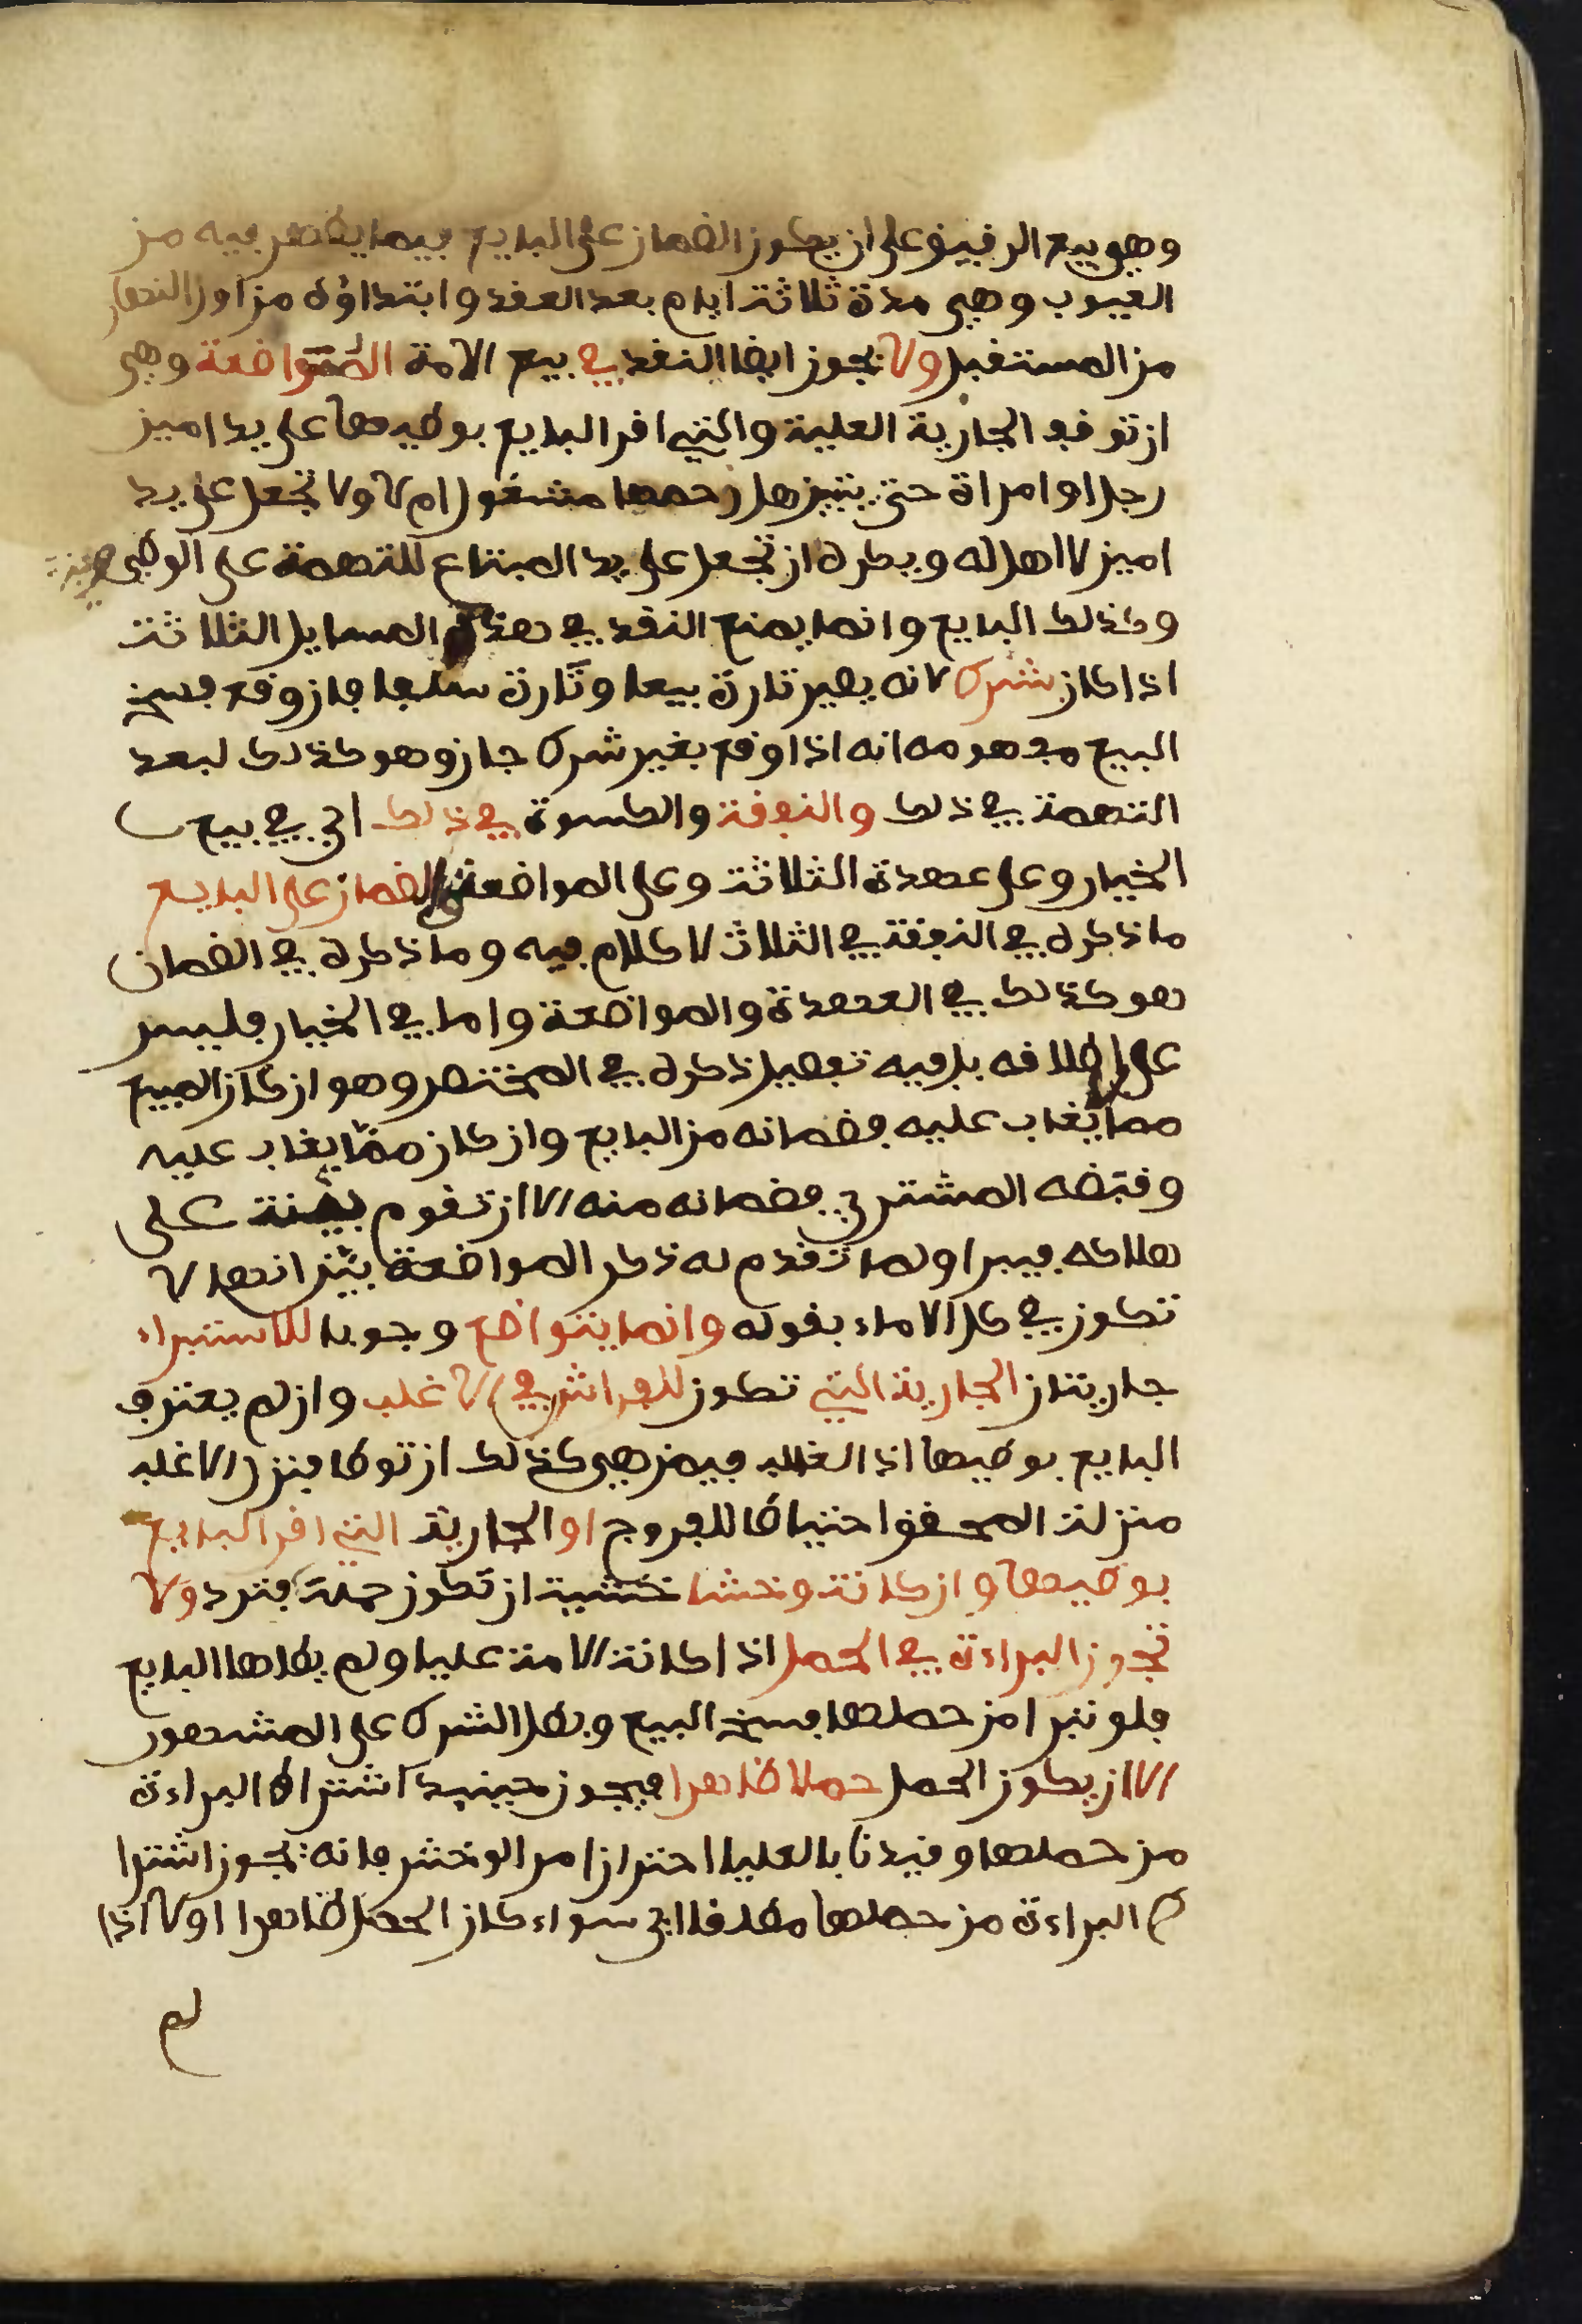 وهي بيع الرقيق على ان يكون الضمان على البايع فيما يظهر فيه من
العيوب وهي مدة ثلاثة ايام بعد العقد وابتداؤه من اول النهار
من المستقبل ولا يجوز ايضا النقد في بيع الامة المتواضعة وهي
ان توقف الجارية العلية والتي اقر البايع بوطيها على يد امين
رجل او امراة حتى يتبين هل رحمها مشغول ام لا ولا تجعل على يد
امين لا اهل له ويكره ان تجعل على يد المبتاع للتهمة على الوطي
وكذلك البايع وانما يمنع النقد في هذه المسايل الثلاثة
اذا كان بشرط لانه يصير تارة بيعا وتارة سلفا فان وقع فسخ
البيع مفهومه انه اذا وقع بغير شرط جاز وهو كذلك لبعد
التهمة في ذلك والنفقة والكسوة في ذلك اي في بيع
الخيار وعلى عهدة الثلاثة وعلى المواضعة والضمان على البايع
ما ذكره في النفقة في الثلاث لا كلام فيه وما ذكره في الضمان
هو كذلك في العهدة والمواضعة واما في الخيار فليس
على اطلاقه بل فيه تفصيل ذكره في المختصر وهو ان كان المبيع
مما يغاب عليه فضمانه من البايع وان كان مما يغاب عليه
وقبضه المشتري فضمانه منه الا ان تقوم بينة على
هلاكه فيبرا ولما تقدم له ذكر المواضعة بين انها لا
تكون في كل الاماء بقوله وانما يتواضع وجوبا للاستبراء
جاريتان الجارية التي تكون للفراش في الاغلب وان لم يعترف
البايع بوطيها اذ الغالب فيمن هي كذلك ان توطا فنزل الاغلب
منزلة المحقق احتياطا للفروج او الجارية التي اقر البايع
بوطيها وان كانت وخشا خشية ان تكون حملت فترد ولا
تجوز البراءة في الحمل اذا كانت الامة عليا ولم يطاها البايع
فلو تبرا من حملها فسخ البيع وبطل الشرط على المشهور
الا ان يكون الحمل حملا ظاهرا فيجوز حينيذ اشتراط البراءة
من حملها وقيدنا بالعليا احترازا من الوخش فانه يجوز اشترا
ط البراءة من حملها مطلقا اي سواء كان الحمل ظاهرا او لا اذا
لم